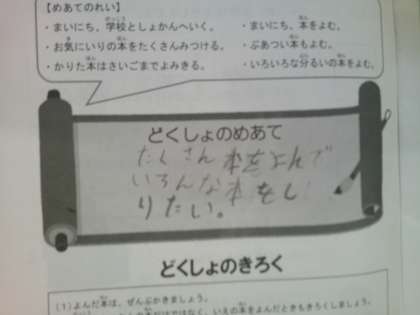 【めあてのれい】
・まいにち、学校としょかんへいく。
・まいにち、本をよむ。
・お気にいりの本をたくさんみつける。
・ぶあつい本もよむ。
・かりた本はさいごまでよみきる。
・いろいろな分るいの本をよむ。
どくしょのめあて
たくさん本をよんで
いろんな本をし
りたい。
どくしょのきろく
(1)よんだ本は、ぜんぶかきましょう。
ではなく、いえの本をよんだときもきろくしましょう。